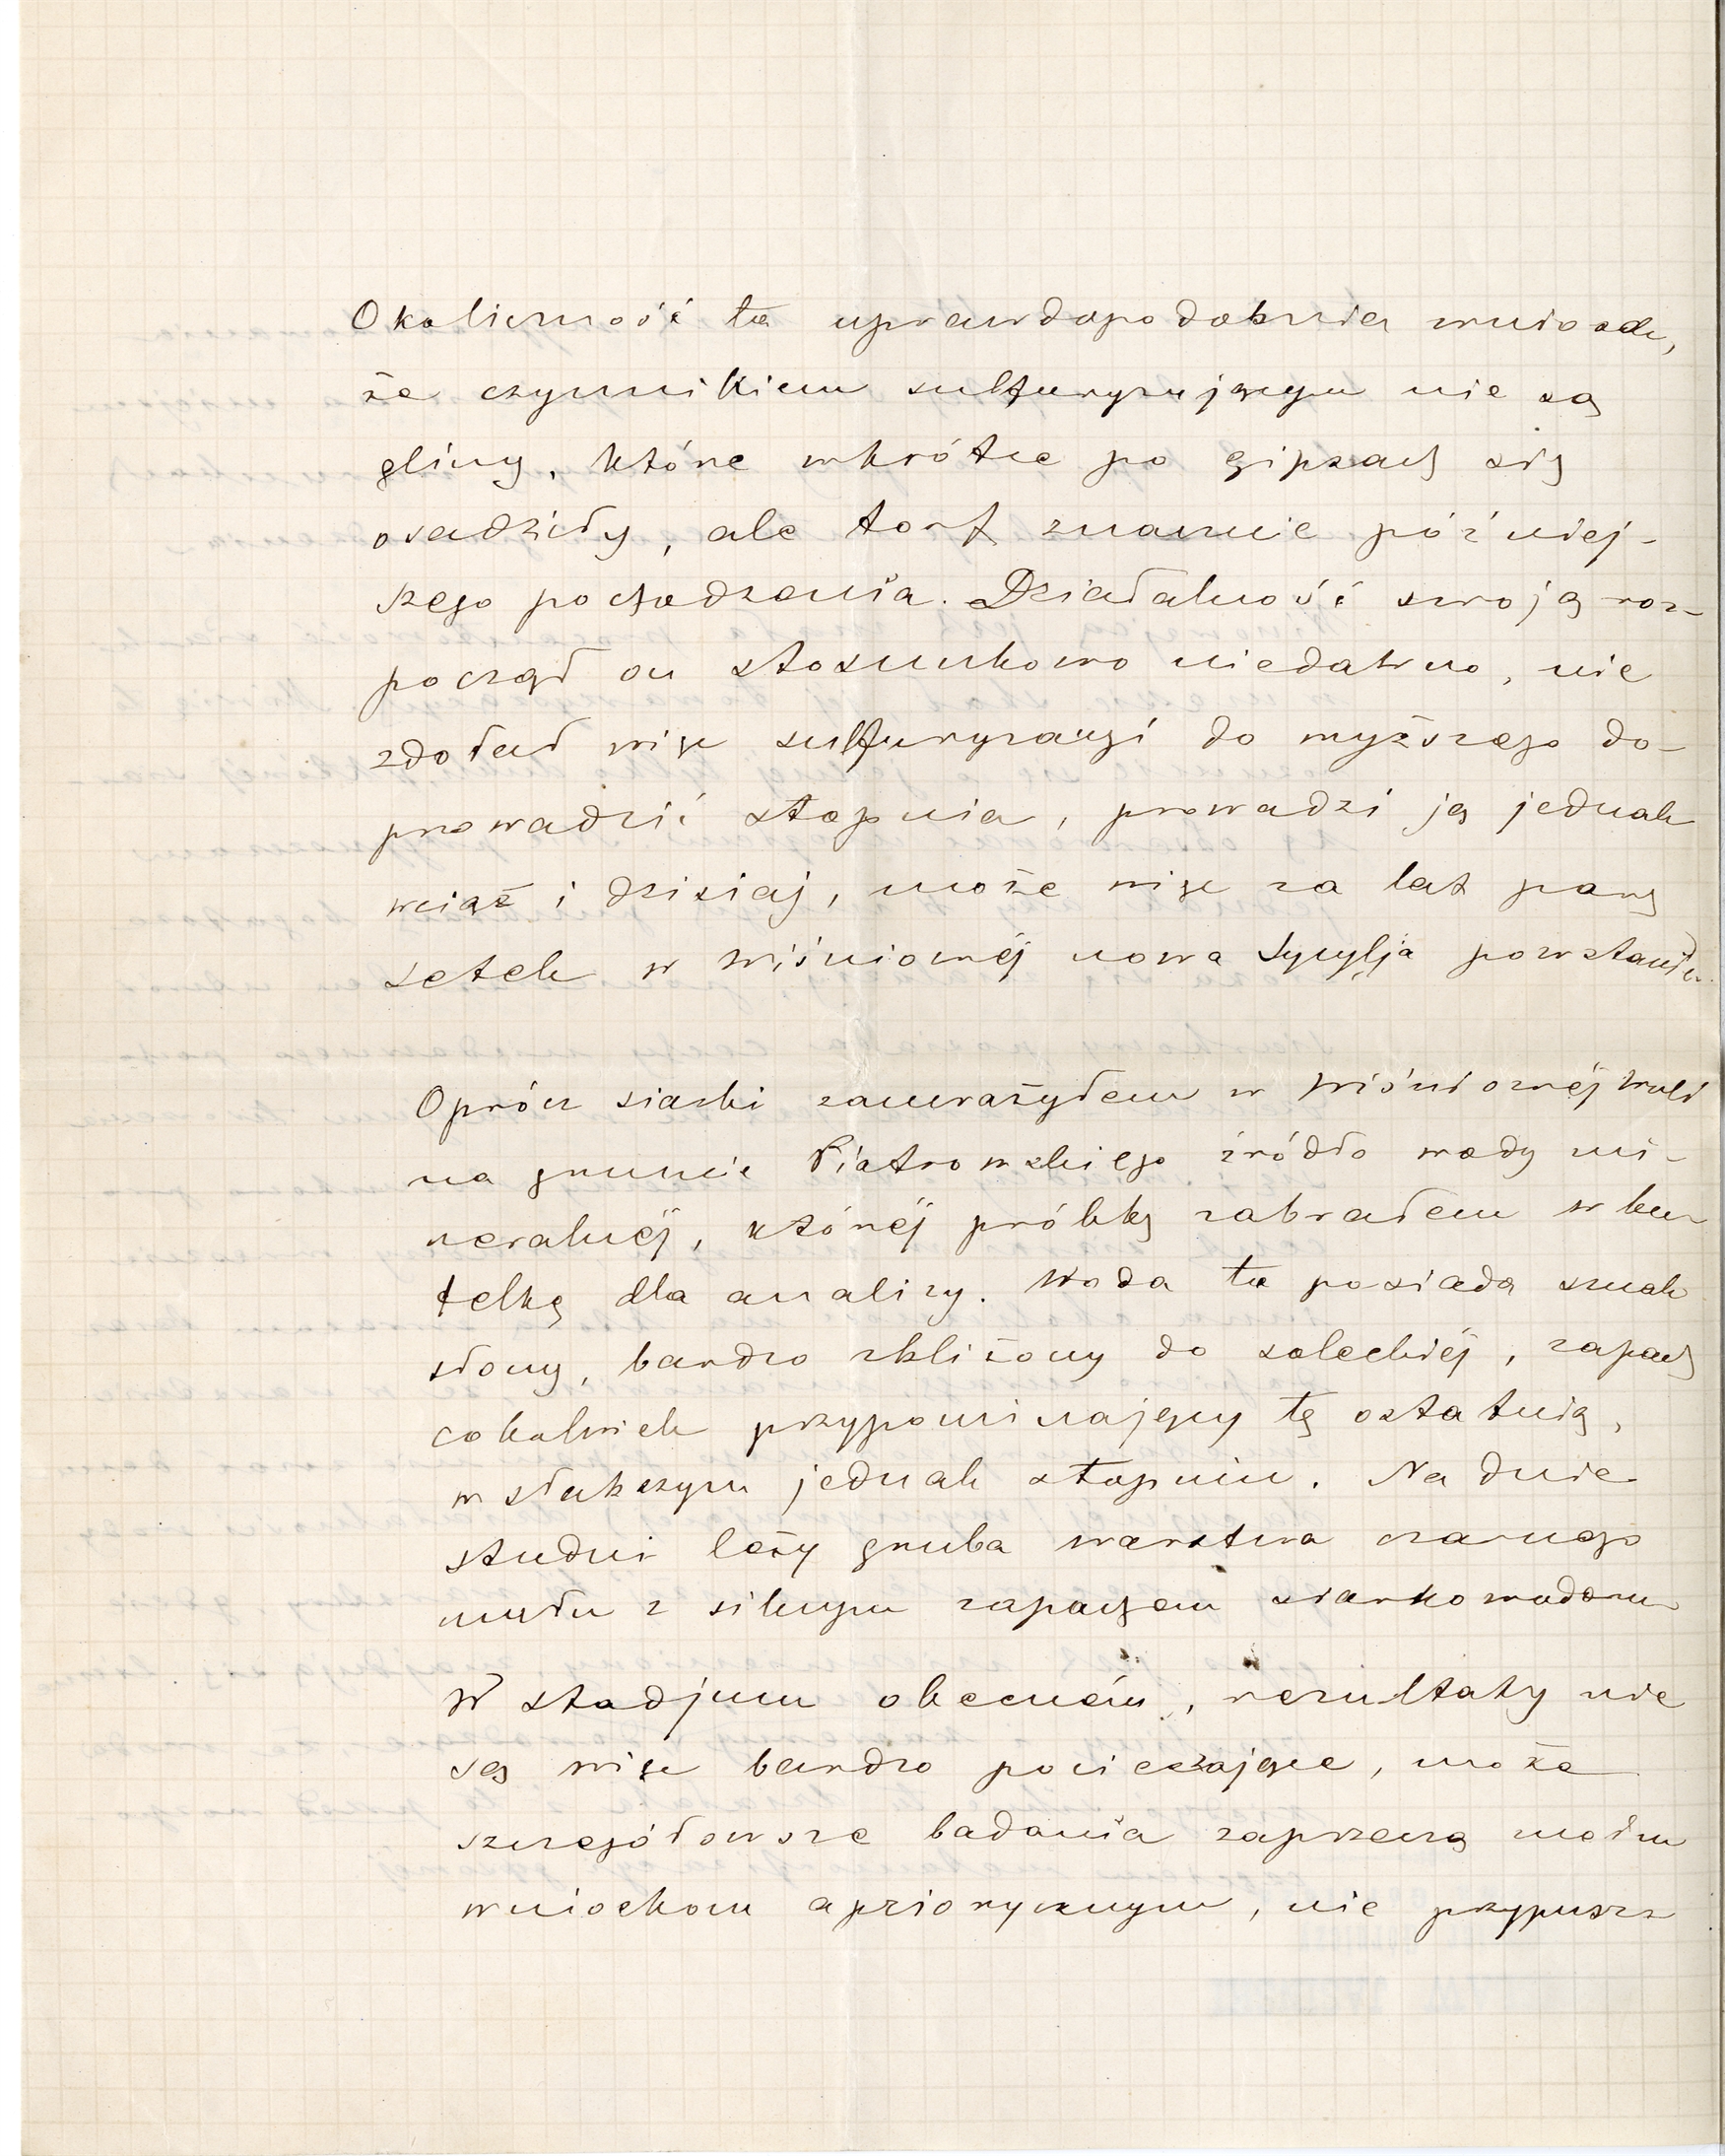 Okoliczność ta uprawdopodobnia wniosek,
że czynnikiem sulfuryzującym nie są
gliny, które wkrótce po gipsach się
osadziły, ale torf znacznie później-
szego pochodzenia. Działalność swoją roz-
począł on stosunkowo niedawno, nie
zdołał więc sulfuryzacyi do wyższego do-
prowadzić stopnia, prowadzi ją jednak
wciąż i dzisiaj, może więc za lat parę
setek w Wiśniowéj nowa Sycylja powstanie.
Oprócz siarki zauważyłem w Wiśniowéj Woli
na gruncie Piotrowskiego źródło wody mi-
neralnéj, któréj próbkę zabrałem w bu-
telkę dla analizy. Woda ta posiada smak
słony, bardzo zbliżony do soleckiéj, zapach
cokolwiek przypominający tę ostatnią,
w słabszym jednak stopniu. Na dnie
studni leży gruba warstwa czarnego
mułu z silnym zapachem siarkowodoru
W stadjum obecném, rezultaty nie
są więc bardzo pocieszające, może
szczegółowsze badania zaprzeczą moim
wnioskom apriorycznym, nie przypuszz